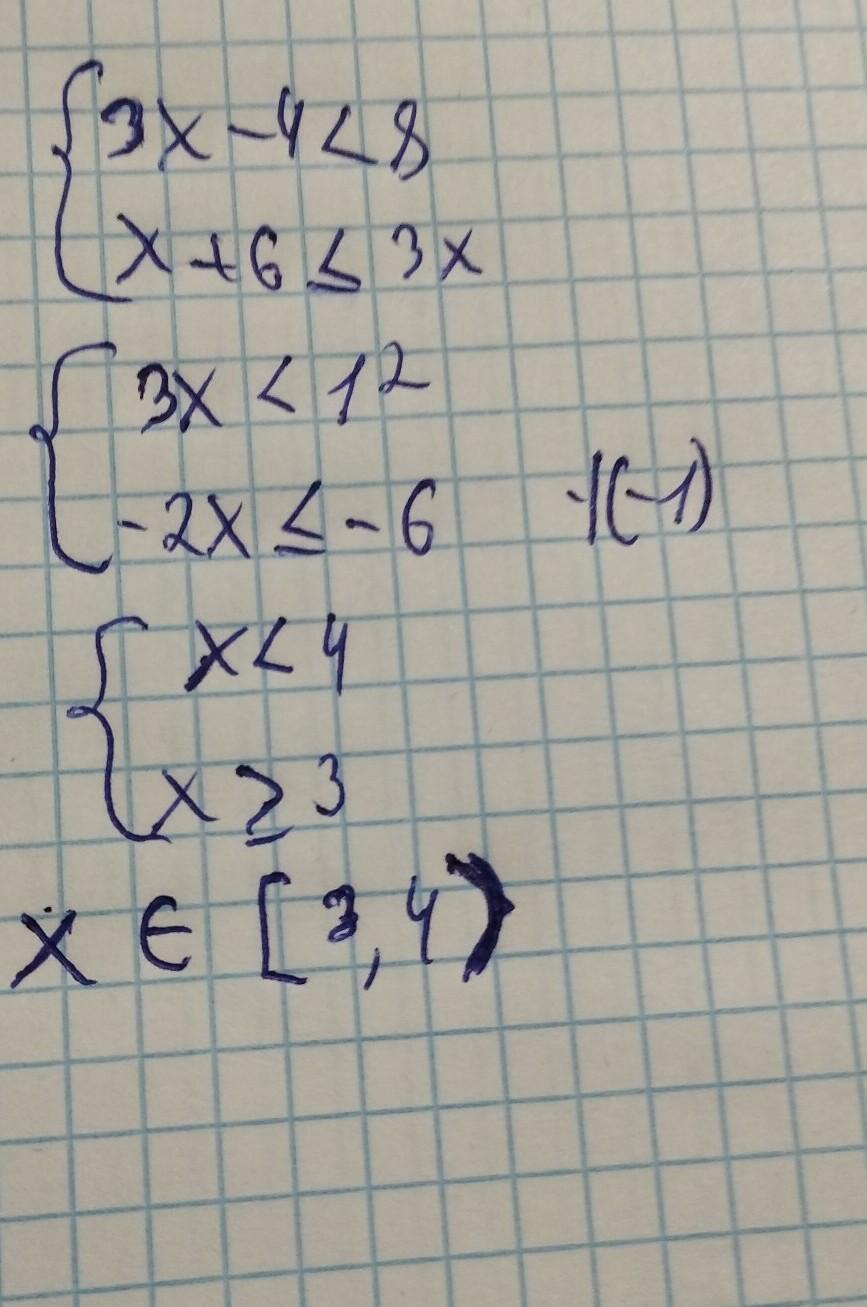 {3x-4<8
x+6≤3x
{3x<12
-2x≤-6 ·|(-1)
{x<4
x≥3
x∈[3,4)